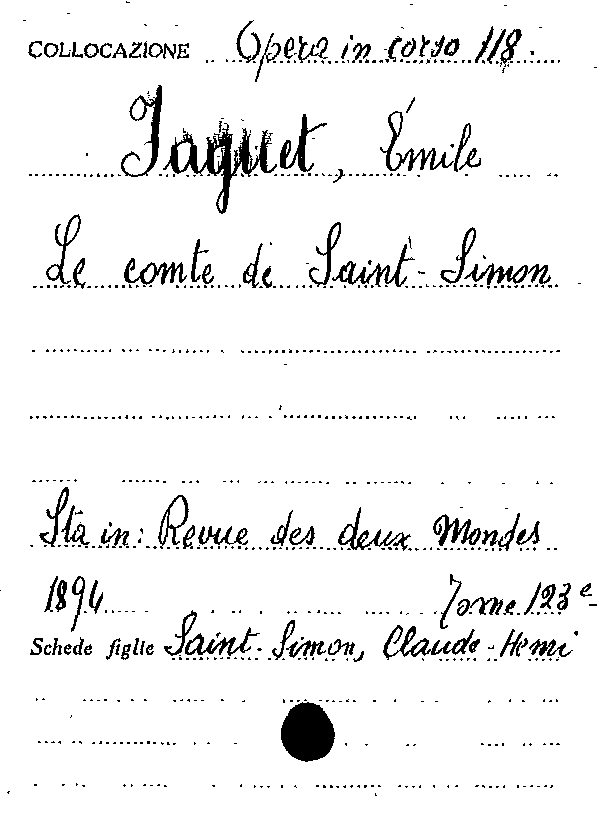 COLLOCAZIONE Opera in corso 118.
Faguet, Émile
Le comte de Saint-Simon
Sta in: Revue des deux Mondes
1894 Tome 123e
Schede figlie Saint-Simon, Claude-Henri